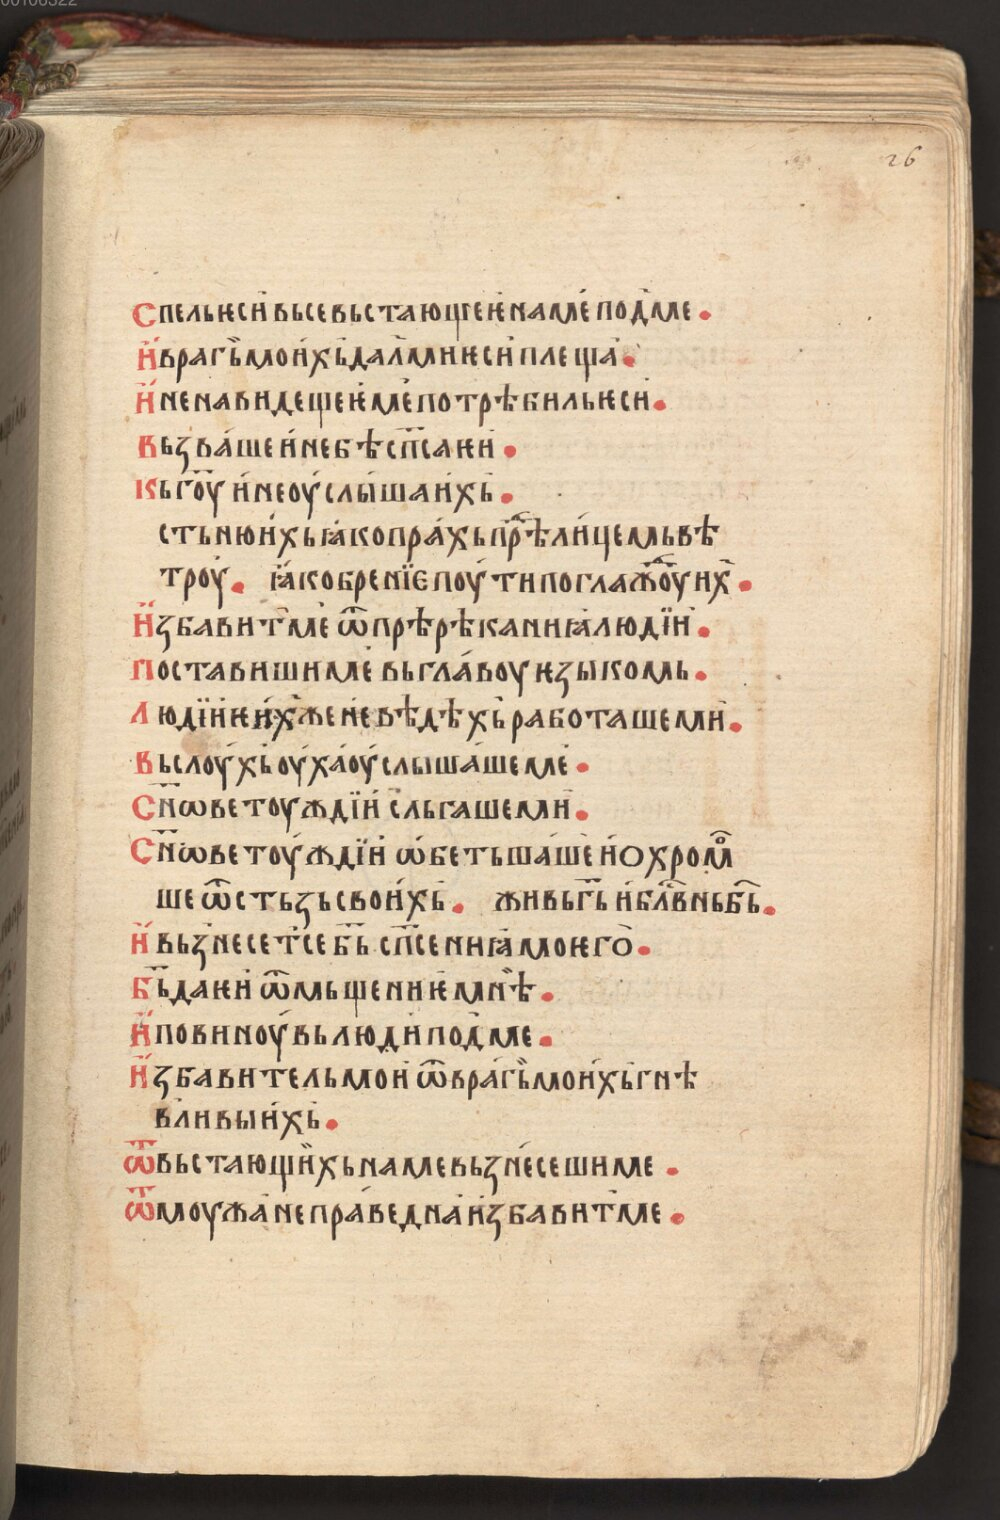 00106322
26
Спельѥси вьсе вьстающеѥ на ме под ме.
И врагы моихь даль ми ѥси плеща.
И ненавидещеѥ ме потрѣбиль ѥси.
Вьзваше и не бѣ сп҃саѥи.
Кь гⷭ҇оу и не оуслыша ихь.
сть ню ихь ꙗко прахь прⷣѣ лицемь вѣ
троу. ꙗко бренїе поутни поглажⷣоу ихⷯ.
Избавит ме ѿ прѣрѣканиꙗ людїи.
Поставиши ме вь главоу ѥзыкомь.
Людїиѥ ихже не вѣдѣхь работаше ми.
Вь слоухь оуха оуслышаше ме.
Сн҃ове тоуждїи сльгаше ми.
Сн҃ове тоуждїи ѡбетьшаше и охромо
ше ѿ стьзь своихь. живь г҃ь и бл҃внь б҃ь.
И вьзнесет се б҃ь сп҃сениꙗ моѥго.
Б҃ь даѥи ѿмьщениѥ мнѣ.
И повиноувь люди под ме.
Избавитель мои ѿ врагы моихь гнѣ
вливыихь.
Ѿ вьстающихь на ме вьзнесеши ме.
Ѿ моужа неправедна избавит ме.